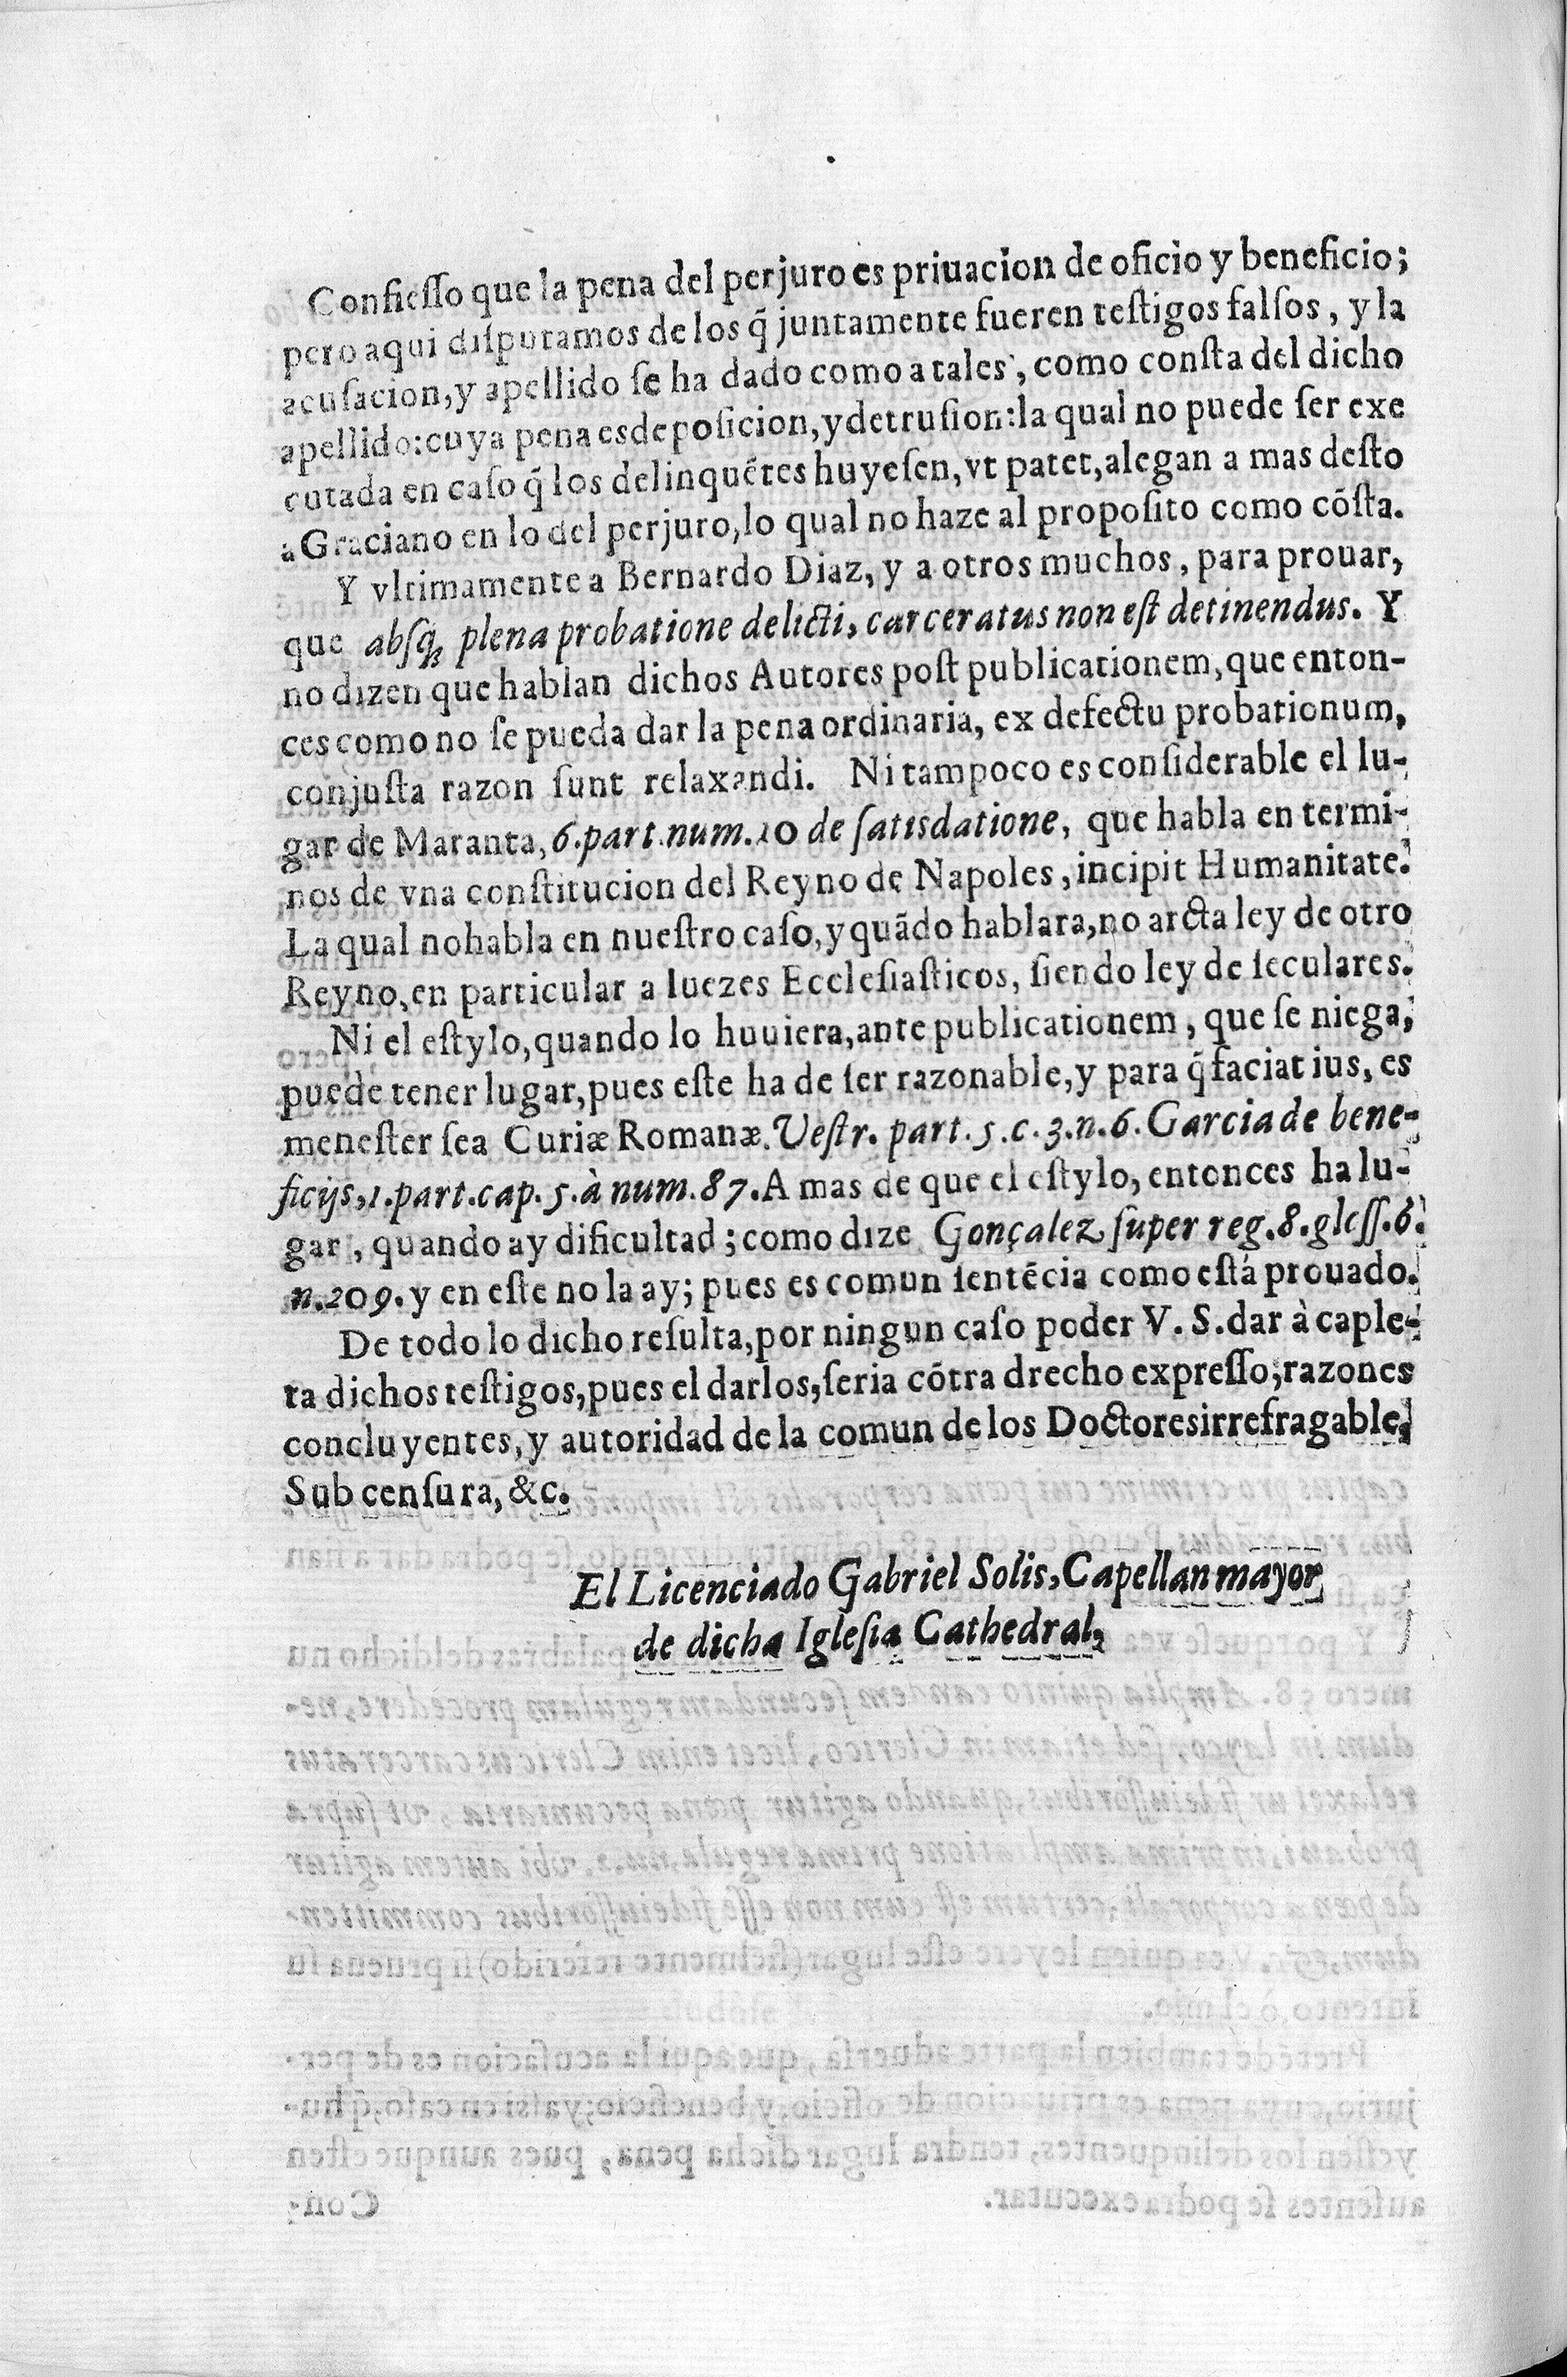 Confieſſo que la pena del perjuro es priuacion de oficio y beneficio;
pero aqui diſputamos de los q̃ juntamente fueren teſtigos falſos, y la
acuſacion, y apellido ſe ha dado como a tales, como conſta del dicho
apellido: cuya pena es depoſicion, y detruſion: la qual no puede ſer exe
cutada en caſo q̃ los delinquẽtes huyeſen, vt patet, alegan a mas deſto
a Graciano en lo del perjuro, lo qual no haze al propoſito como cõſta.
Y vltimamente a Bernardo Diaz, y a otros muchos, para prouar,
que abſq; plena probatione delicti, carceratus non eſt detinendus. Y
no dizen que hablan dichos Autores poſt publicationem, que enton-
ces como no ſe pueda dar la pena ordinaria, ex defectu probationum,
con juſta razon ſunt relaxandi. Ni tampoco es conſiderable el lu-
gar de Maranta, 6. part. num. 20 de ſatisdatione, que habla en termi-
nos de vna conſtitucion del Reyno de Napoles, incipit Humanitate.
La qual no habla en nueſtro caſo, y quãdo hablara, no arcta ley de otro
Reyno, en particular a Iuezes Eccleſiaſticos, ſiendo ley de ſeculares.
Ni el eſtylo, quando lo huuiera, ante publicationem, que ſe niega,
puede tener lugar, pues eſte ha de ſer razonable, y para q̃ faciat ius, es
meneſter ſea Curiæ Romanæ. Veſtr. part. 5. c. 3. n. 6. Garcia de bene-
ficijs, 1. part. cap. 5. à num. 87. A mas de que el eſtylo, entonces ha lu-
gar, quando ay dificultad; como dize Gonçalez ſuper reg. 8. gloſſ. 6.
n. 209. y en eſte no la ay; pues es comun ſentẽcia como eſtá prouado.
De todo lo dicho reſulta, por ningun caſo poder V. S. dar à caple-
ta dichos teſtigos, pues el darlos, ſeria cõtra drecho expreſſo, razones
concluyentes, y autoridad de la comun de los Doctores irrefragable.
Sub cenſura, &c.
El Licenciado Gabriel Solis, Capellan mayor
de dicha Igleſia Cathedral,